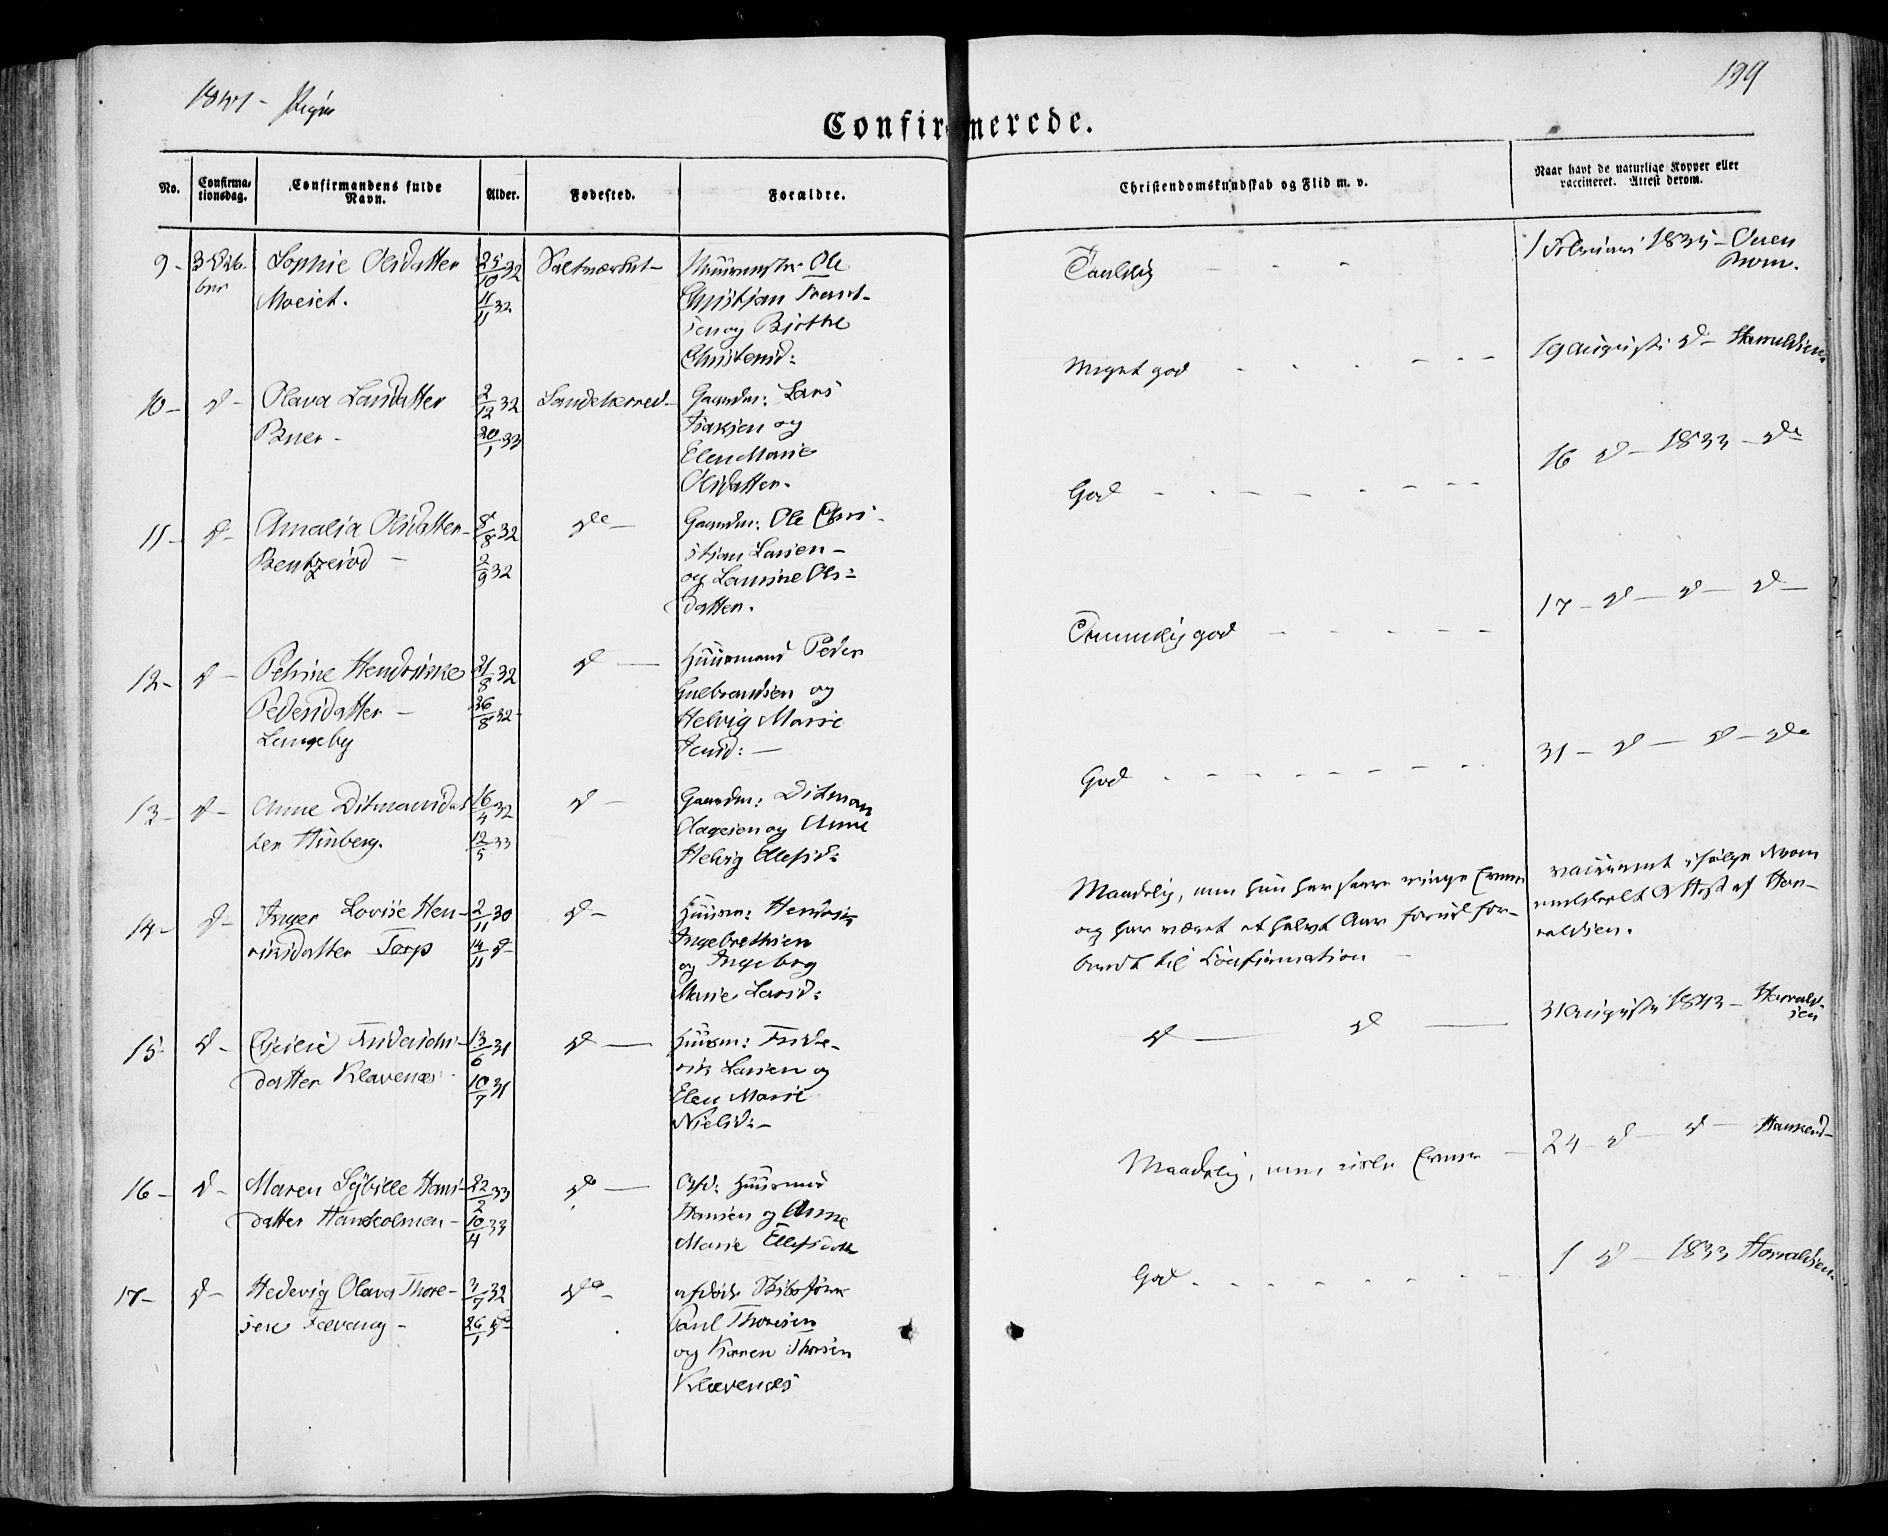 1847 - Piger
199
Confirmerede.
No.
Confirma-
tionsdag.
Confirmandens fulde
Navn.
Alder.
Fødested.
Forældre.
Christendomskundskab og Flid m. v.
Naar havt de naturlige Kopper eller
vaccineret. Attest derom.
9 -
Sophie Olsdatter
Moeiet.
25/10 32
11/11 32
Ole
Christian
sen og Birthe
Christensd:
1 Februari 1835 -
10 - d -
Olava Larsdatter
Buer -
2/12 32
20/1 33
Sandeherred -
Gaardm: Lars
Isaksen og
Elen Marie
Olsdatter.
Meget god
19 Augusti d - Haraldsen
11 - d -
Amalia Olsdatter -
Bentzerød -
8/8 32
2/9 32
de -
Gaardm: Ole Chri-
stian Larsen -
og Lamine Ols-
datter.
God
16 d - 1833 - de
12 - d -
Petrine Hendrikke
Pedersdatter -
Langeby
21/8 32
26/8 32 -
d -
Huusmand Peder
Gulbrandsen og
Helvig Marie
Jensd: -
Temmelig god
17 - d - d - d -
13 - d -
Anne Ditmansdat
ter Hinberg.
16/4 32
12/5 33
d -
Gaardm: Ditman
Olagesen og Anne
Helvig Ellefsd:
God
31 - d - d - de
14 - d -
Inger Lovise Hen-
riksdatter Torp
2/11 30
14/11 d -
d -
Huusm: Hendrik
Ingebrethsen
og Ingeborg
Marie Larsd:
Maadelig, men hun har svare ringe Evner
og har været et halvt Aar forud for-
beredt til Confirmation -
vaccineret ifølge
meddeelt Attest af Har-
raldsen.
15 d -
Friderichs-
datter Klavenæs
13/6 31
10/7 31
d -
Huusm: Fride-
rik Larsen og
Elen Marie
Nielsd: -
d - d -
31 Augusti 1843 - Harrald-
sen
16 - d -
Maren Sybille Hans-
datter Hauskolmen -
22/2 33
10/4 33
do -
Afd: Huusmd
Hansen og Anne
Marie Ellefsdatt
Maadelig, men Evner -
24 - d - d -
17 - d -
Hedevig Olava Thore-
sen Fævang -
3/7 32
26/1
do -
afdøde Skibsfører
Paul Thoresen
og Karen Thorsen
Klavenæs
God
1 d - 1833 Haraldsen.